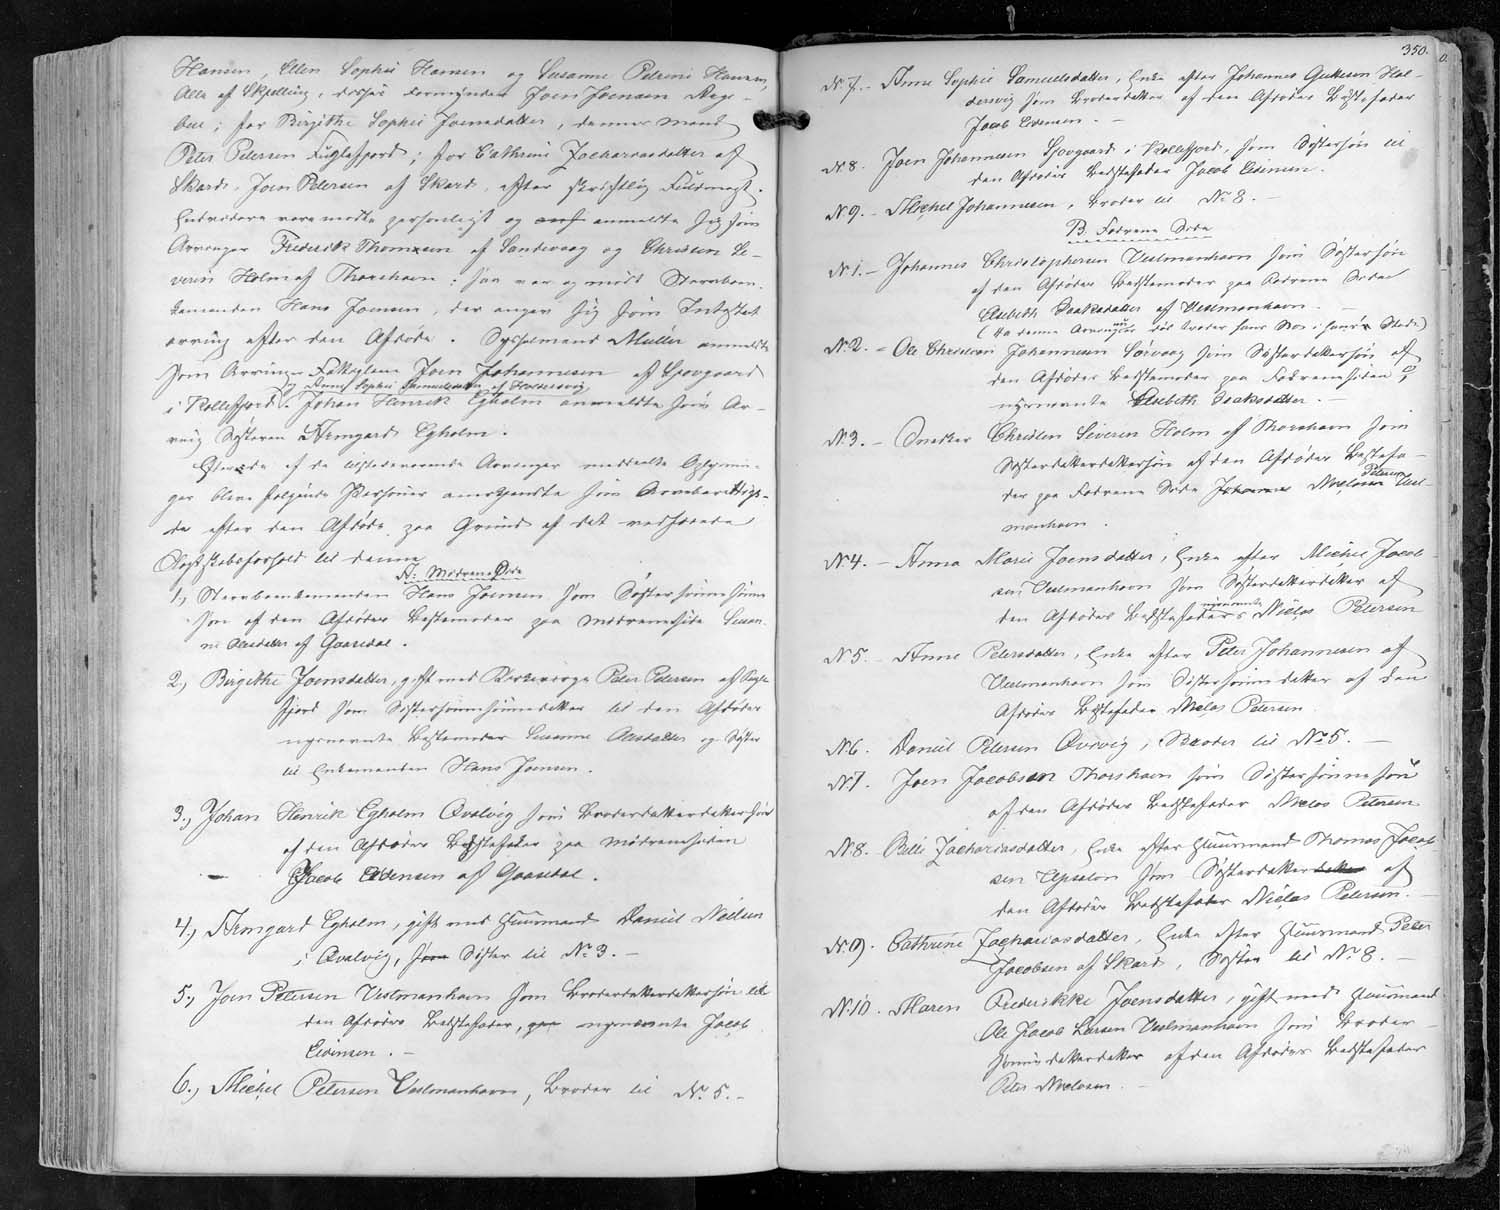 Hansen, Ellen Sophie Hansen og Susanne Petrine Hansen,
Alle af Skjelling, disses Formynder Joen Joensen Kage-
; for Birgithe Sophie Joensdatter, dennes Mand
Peter Petersen Fuglefjord; for Cathrine Zachariasdatter af
Skard, Joen Petersen af Skard, efter skriftlig Fuldmagt.
Endvidere vare mødte personligt og anmeldte sig som
Arvinger Frederik Thomsen af Sandevaag og Christen Se-
verin Holm af Thorshavn; saa var og mødt
Hans Joensen, der angav sig som Intestat
arving efter den Afdøde. Sysselmand Müller anmeldte
som Arving Joen Johannesen af Giovgaard
og Anne Sophie Samuelsdatter af Haldersvig
i Kollefjord. Johan Henrik Egholm anmeldte som Ar-
ving Søsteren Armgard Egholm.
Efter de af de tilstedeværende Arvinger meddeelte Oplysnin-
ger bleve følgende Personer anerkjendte som Arveberettige-
de efter den Afdøde paa Grund af det vedførte
Slægtskabsforhold til denne
A: Mødrene Side
1., Hans Joensen som Søstersønnesønne-
søn af den Afdødes Bestemoder paa mødreneside Susan-
ne Olesdatter af Gaasedal.
2., Birgithe Joensdatter, gift med Peter Petersen af Fugle-
fjord som Søstersønnesønnedatter til den Afdødes
nysnevnte Bestemoder Susanne Olesdatter og Søster
til Hans Joensen.
3., Johan Henrik Egholm Qvalvig som Broderdatterdattersøn
af den Afdødes Bedstefader paa mødrenesiden
Jacob Eidensen af Gaasedal.
4., Armgard Egholm, gift med Huusmand Daniel Nielsen
i Qvalvig, som Søster til No 3. –
5., Joen Petersen Vestmanhavn som Broderdatterdattersøn til
den Afdødes Bedstefader, nysnevnte Jacob
Eidensen. –
6., Michel Petersen Vestmanhavn, Broder til No. 5. –
350.
No 7. – Anne Sophie Samuelsdatter, Enke efter Johannes Guttesen Hal-
dersvig som Broderdatter af den Afdødes Bedstefader
Jacob Eidensen. –
No 8. Joen Johannesen Giovgaard i Kollefjord, som Søstersøn til
den Afdødes Bedstefader Jacob Eidensen.
No 9. – Michel Johannesen, Broder til No 8. –
B. Fædrene Side
No 1. – Johannes Christophersen Vestmanhavn som Søstersøn
af den Afdødes Bedstemoder paa Fædrene Side
Elsebeth Isaksdatter af Vestmanhavn. –
(Da denne Arvinger Stede)
No 2. – Ole Christian Johannesen Sørvaag som Søsterdattersøn af
den Afdødes Bedstemoder paa Fædrenesiden,
nysnevnte Elsebeth Isaksdatter. –
No 3. – Snedker Christen Severin Holm af Thorshavn som
Søsterdatterdattersøn af den Afdødes Bestefa-
der paa Fædrene Side Johannes Niclas Petersen Vest-
manhavn.
No 4. – Anna Marie Joensdatter, Enke efter Michel Jacob-
sen Vestmanhavn som Søsterdatterdatter af
den Afdødes Bedstefader nysnevnte Niclas Petersen
No 5. – Anne Petersdatter, Enke efter Peter Johannesen af
Vestmanhavn som Søstersønnedatter af den
Afdødes Bedstefader Niclas Petersen
No 6. Daniel Petersen Qvivig, Broder til No 5. –
No 7. Joen Jacobsen Thorshavn som Søstersønnesøn
af den Afdødes Bedstefader Niclas Petersen
No 8. Bille Zachariasdatter, Enke efter Huusmand Thomas Jacob-
sen Upsalon som Søsterdatter datter af
den Afdødes Bedstefader Niclas Petersen. –
No 9. Cathrine Zachariasdatter, Enke efter Huusmand Peter
Jacobsen af Skard, Søster til No 8. –
No 10. Maren Frederikke Joensdatter, gift med Huusmand
Ole Jacob Larsen Vestmanhavn som Broder-
sønnedatterdatter af den Afdødes Bedstefader
Peter Niclasen. –